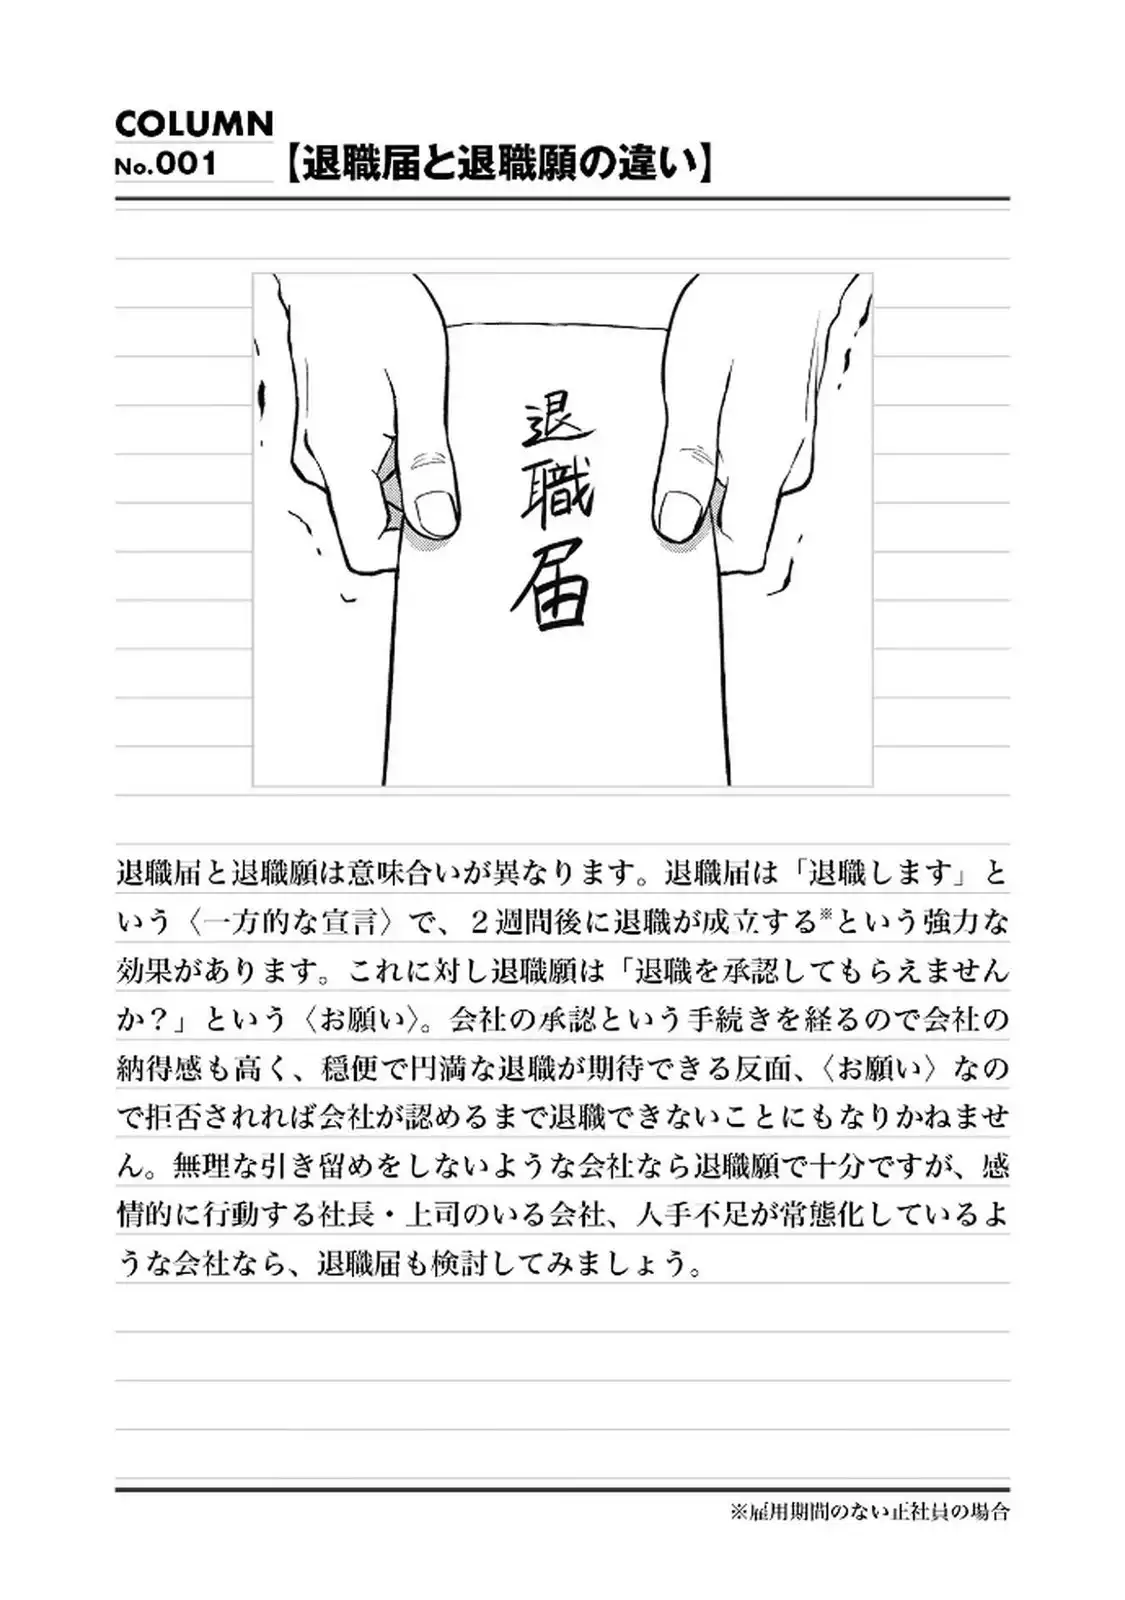 COLUMN
No.001
【退職届と退職願の違い】
退職届
退職届と退職願は意味合いが異なります。退職届は「退職します」と
いう〈一方的な宣言〉で、２週間後に退職が成立する※という強力な
効果があります。これに対し退職願は「退職を承認してもらえません
か？」という〈お願い〉。会社の承認という手続きを経るので会社の
納得感も高く、穏便で円満な退職が期待できる反面、〈お願い〉なの
で拒否されれば会社が認めるまで退職できないことにもなりかねませ
ん。無理な引き留めをしないような会社なら退職願で十分ですが、感
情的に行動する社長・上司のいる会社、人手不足が常態化しているよ
うな会社なら、退職届も検討してみましょう。
※雇用期間のない正社員の場合